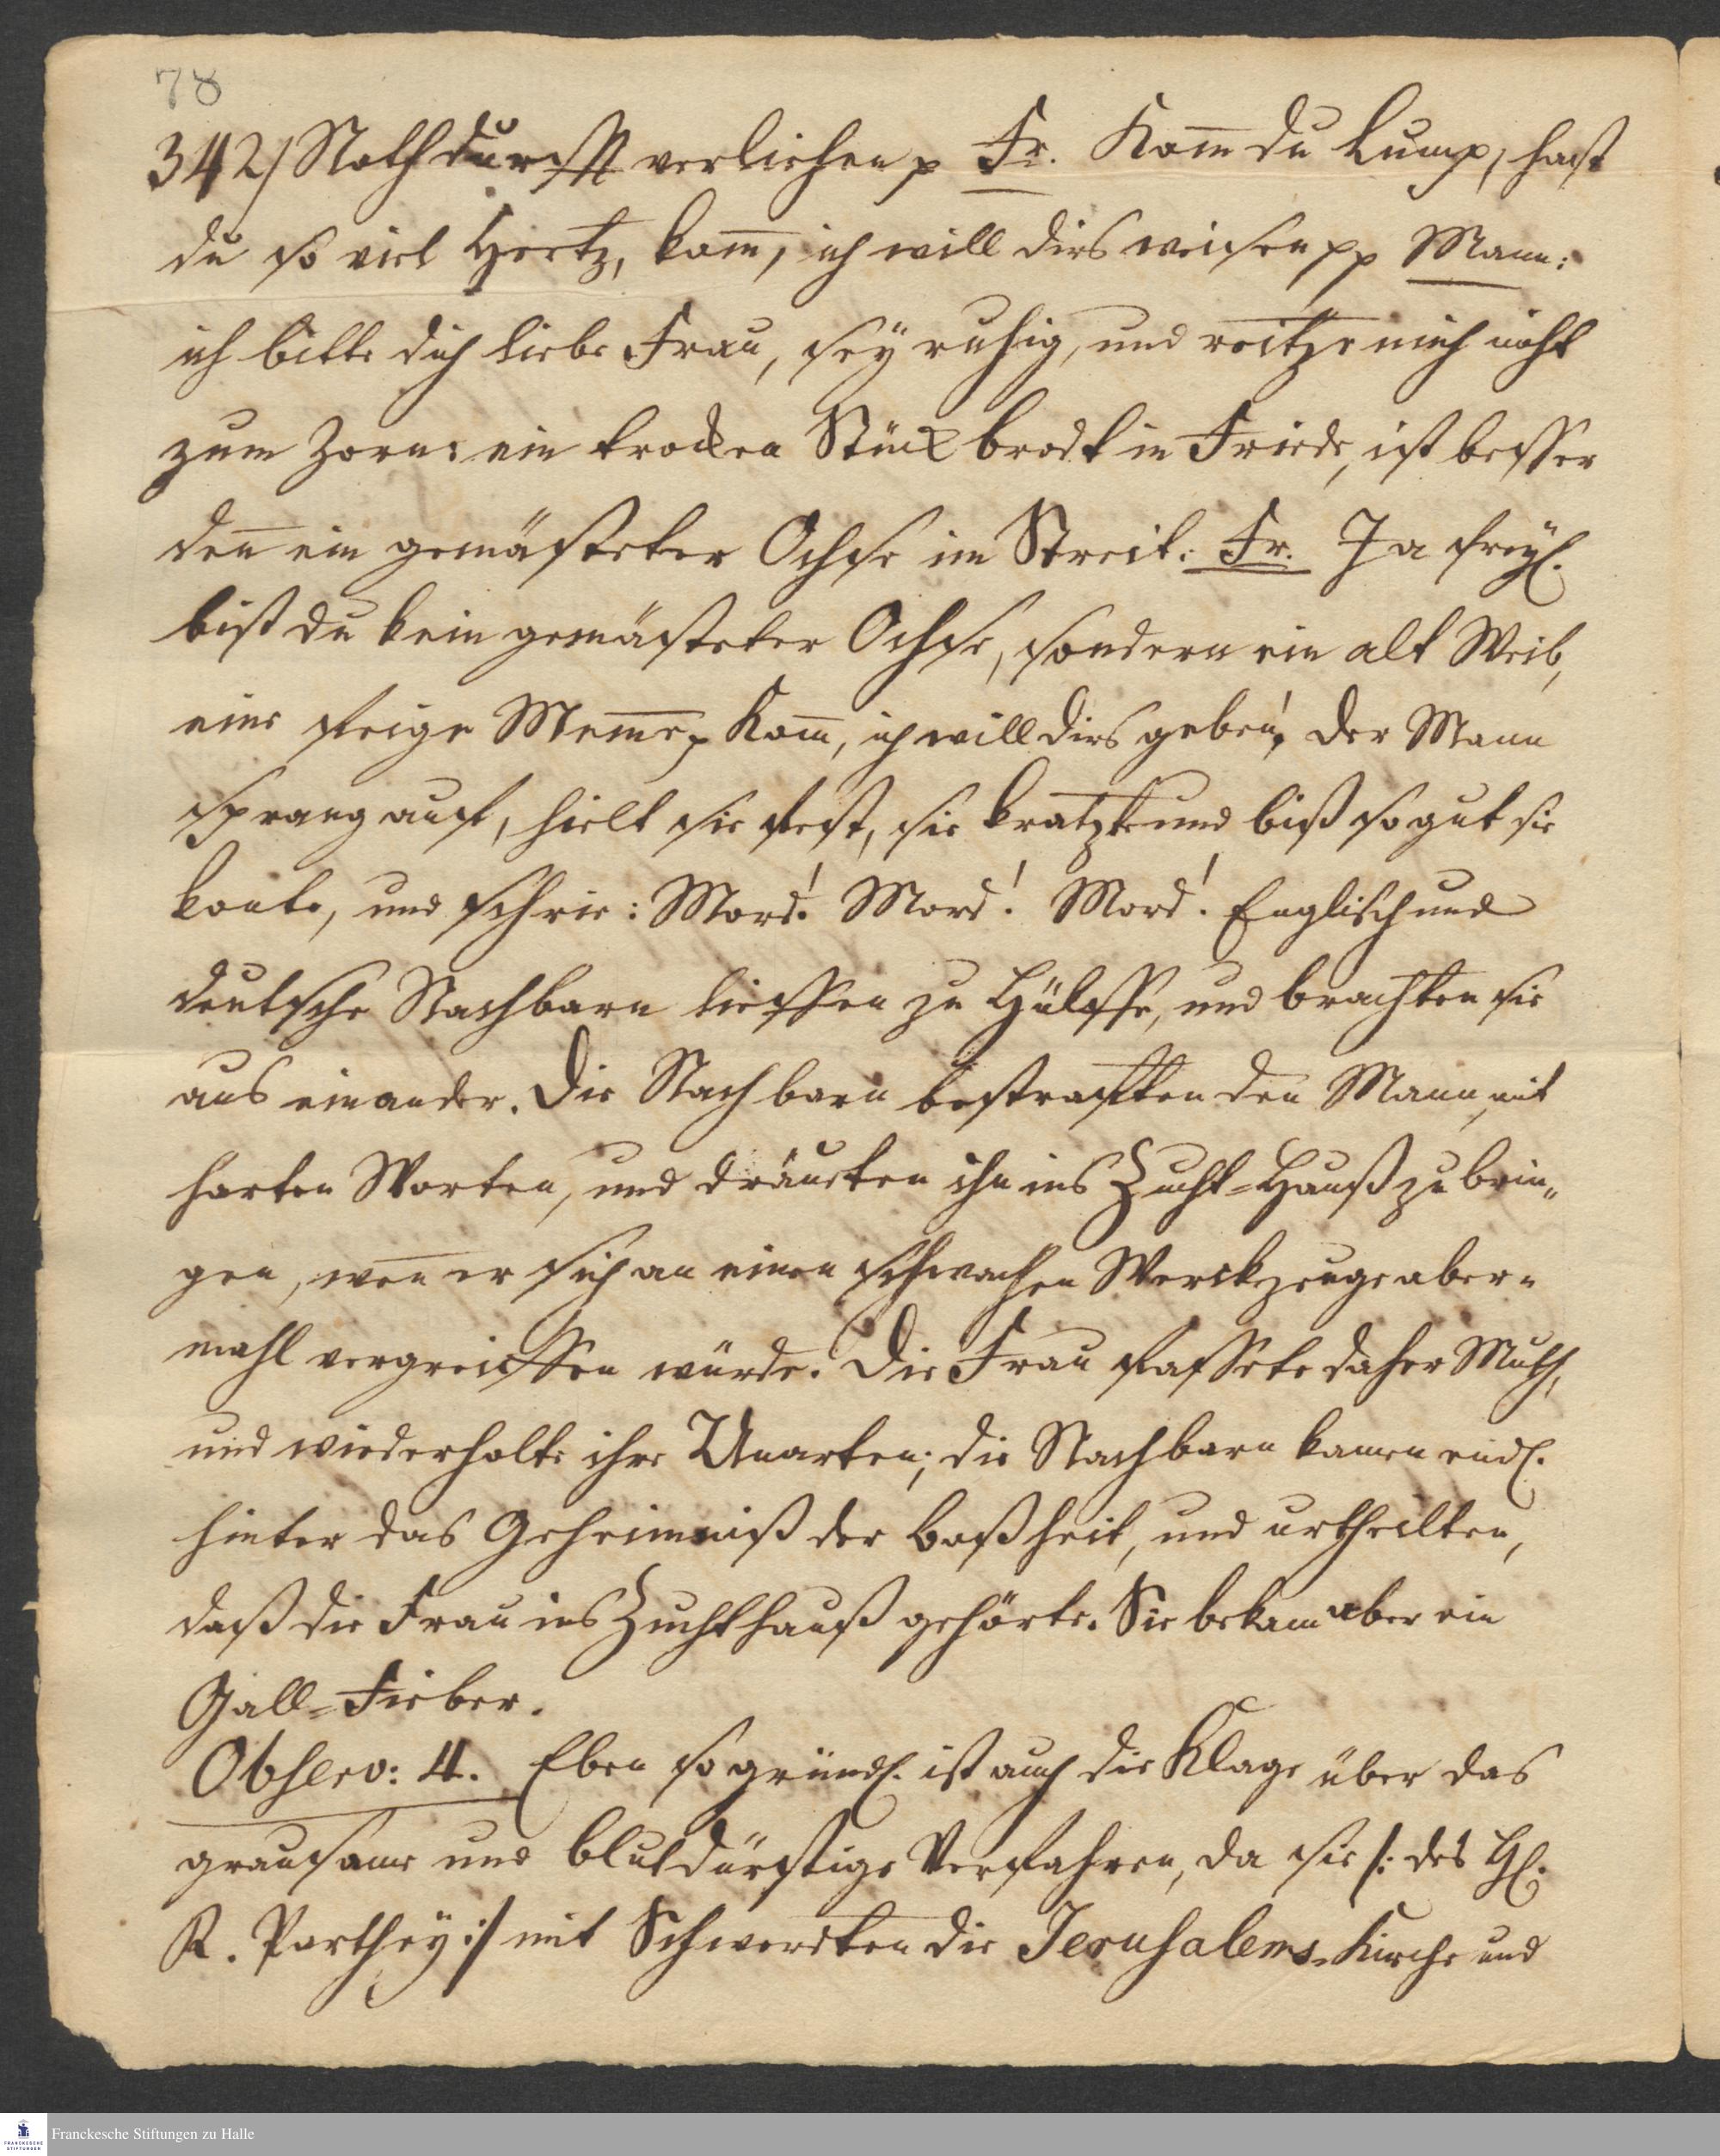 78
342/ Nothdurfft verliehen p Fr. Kom̅ du Lump, hast
du so viel Hertz, kom̅, ich will dirs weisen pp Mann:
ich bitte dich liebe Frau, sey ruhig, und reitze mich nicht
zum Zorne: ein trocken Stück brodt in Friede, ist besser
den̅ ein gemästeter Ochse im Streit: Fr. Ja freyl.
bist du kein gemästeter Ochse, sondern ein alt Weib,
eine feige Mem̅e, Kom̅, ich will dirs geben! Der Mann
sprang auf, hielt sie fest, sie kratzte und biß so gut sie
konte, und schrie: Mord! Mord! Mord! Englisch und
deutsche Nachbarn lieffen zu Hülffe, und brachten sie
aus einander. Die Nachbarn bestrafften den Mann, mit
harten Worten, und dräueten ihn ins Zucht=Hauß zu brin„
gen, wen̅ er sich an einen schwachen Werckzeuge aber=
mahl vergreiffen würde. Die Frau fassete daher Muth,
und wiederholte ihre Unarten; die Nachbarn kamen endl.
hinter das Geheimniß der Boßheit, und urtheilten,
daß die Frau ins Zuchthauß gehörte. Sie bekam aber ein
Gall=Fieber.
Observ: 4. Eben so gründl. ist auch die Klage über das
grausame und blutdürstige Verfahren, da sie /: des H.
R. Parthey :/ mit Schwerdten die Jerusalems=Kirche und
Franckesche Stiftungen zu Halle
FRANCKESCHE STIFTUNGEN